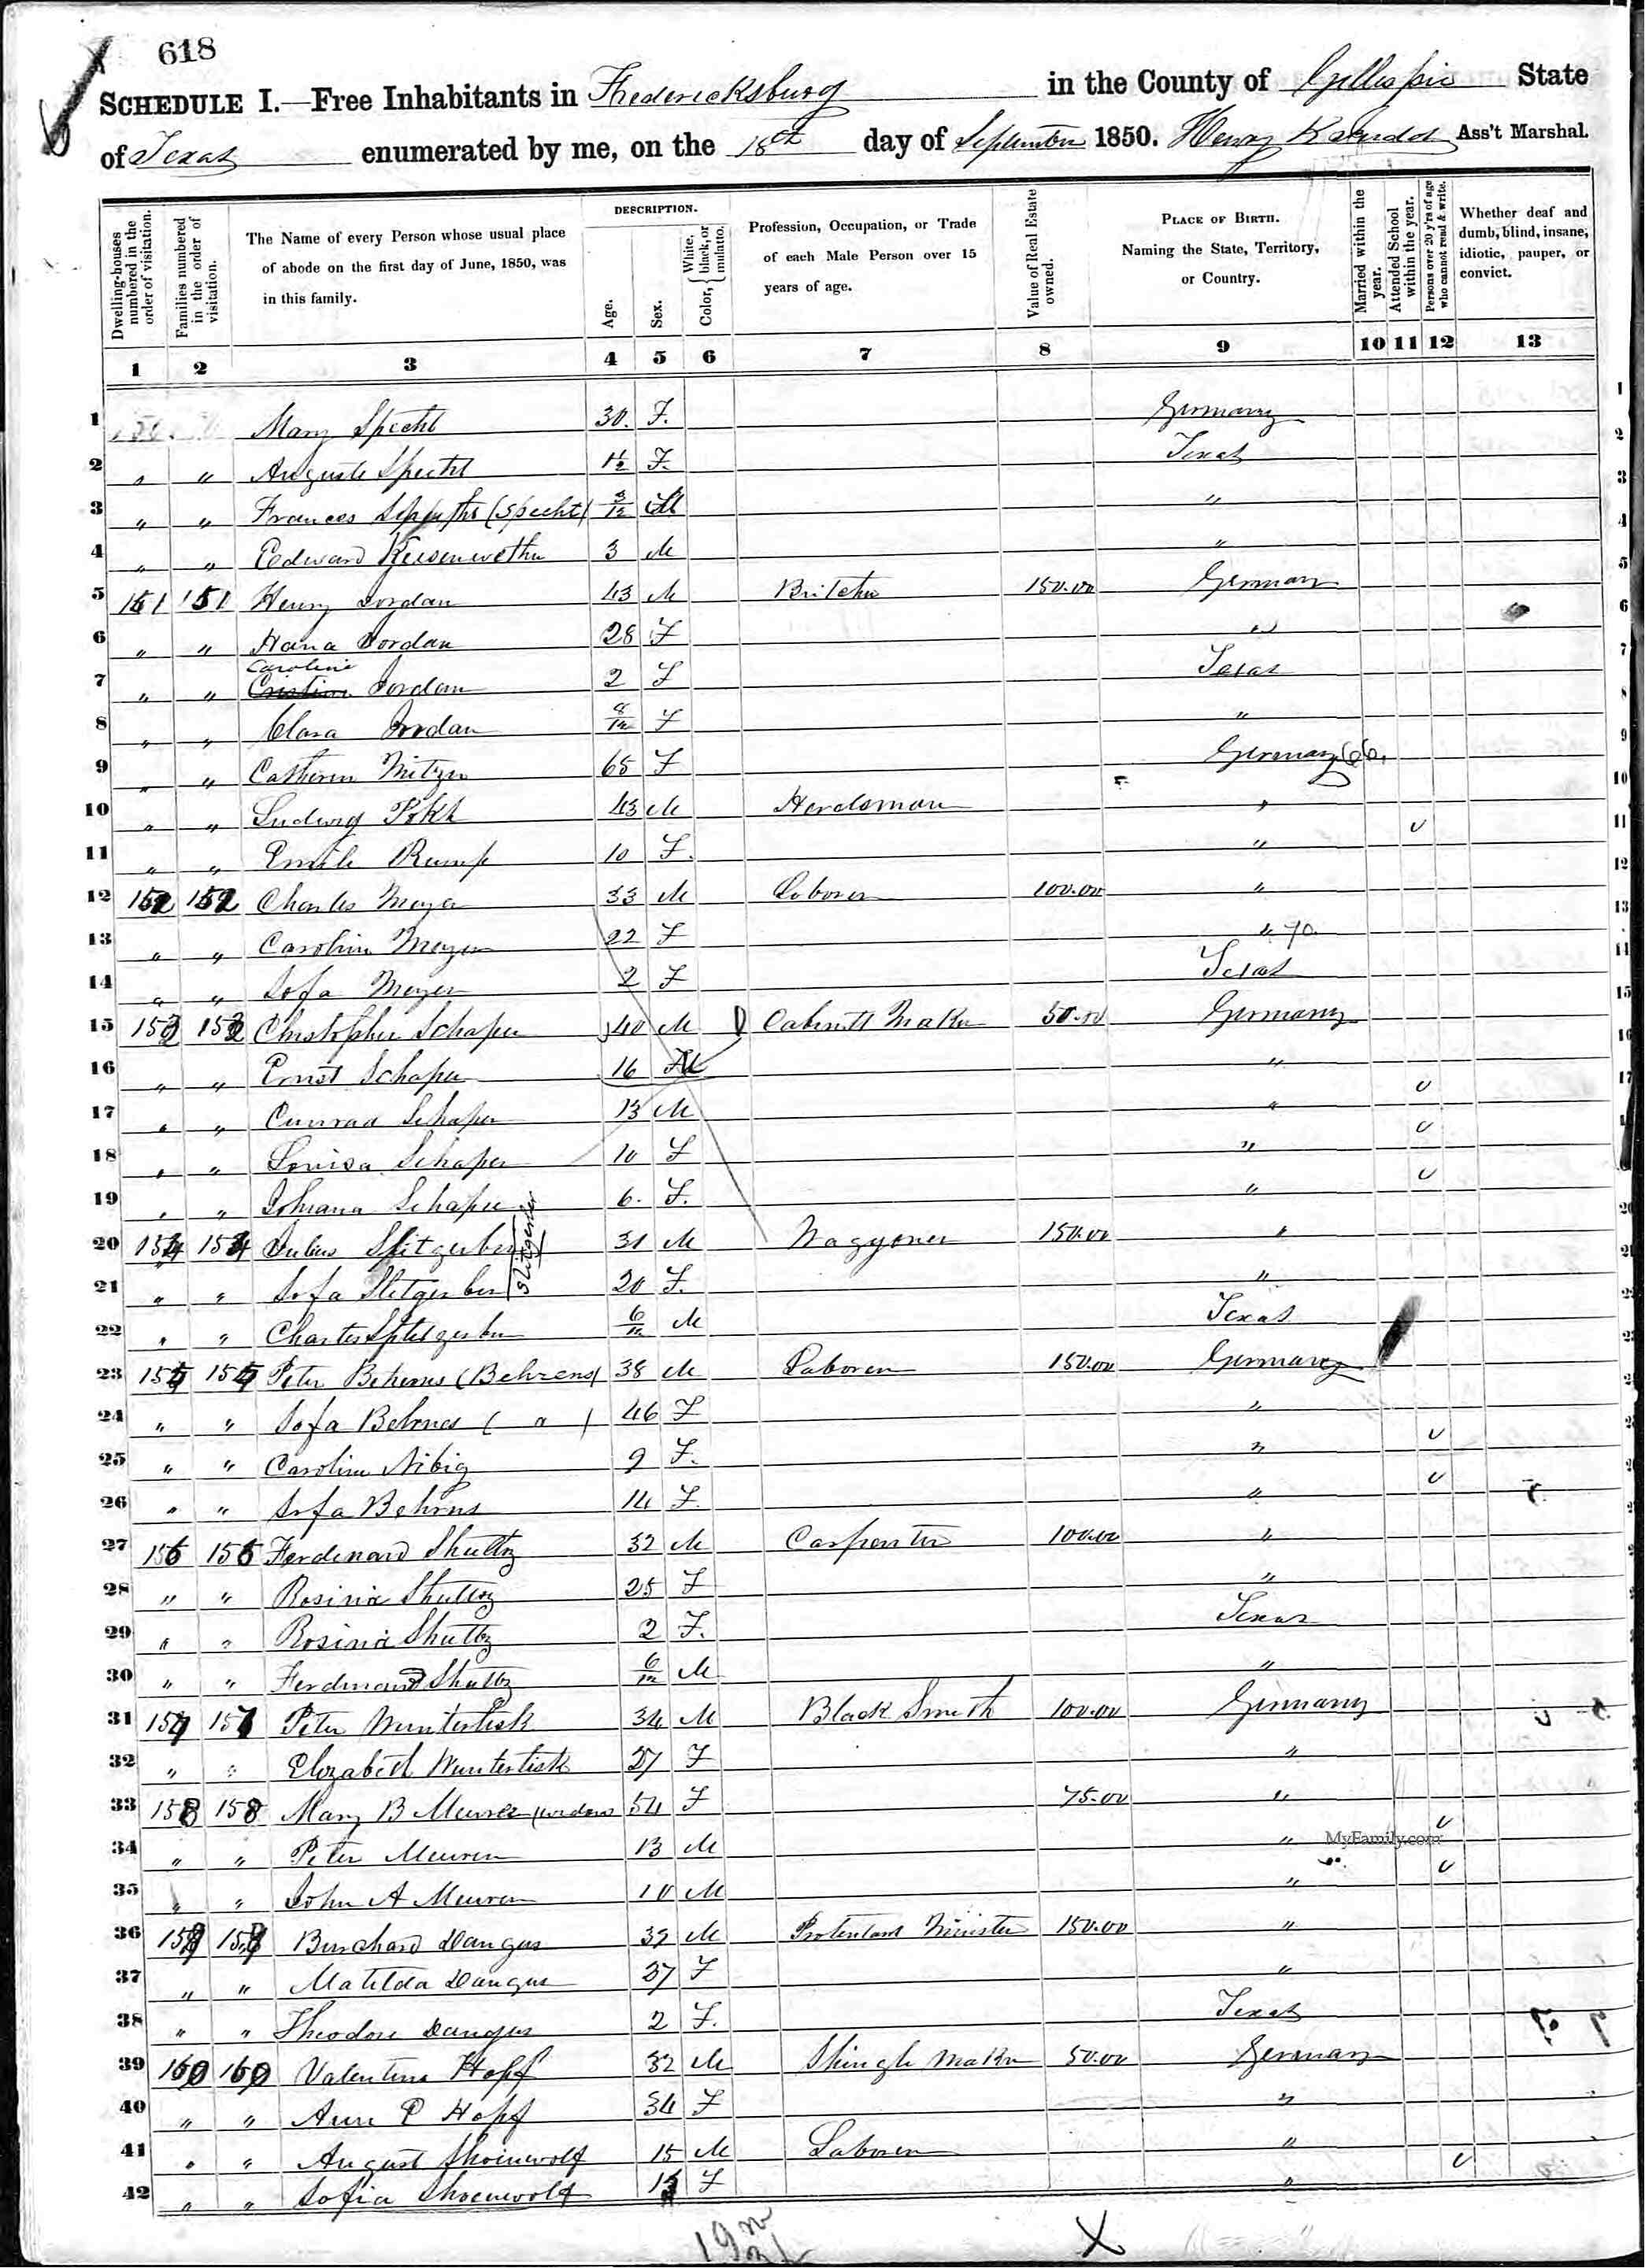 618
SCHEDULE I.—Free Inhabitants in Fredericksburg in the County of Gillespie State
of Texas enumerated by me, on the 18th day of September 1850. Henry Ass't Marshal.
Dwelling-houses numbered in the order of visitation.
Families numbered in the order of visitation.
The Name of every Person whose usual place of abode on the first day of June, 1850, was in this family.
DESCRIPTION.
Age.
Sex.
Color, { White, black, or mulatto.
Profession, Occupation, or Trade of each Male Person over 15 years of age.
Value of Real Estate owned.
PLACE OF BIRTH. Naming the State, Territory, or Country.
Married within the year.
Attended School within the year.
Persons over 20 y'rs of age who cannot read & write.
Whether deaf and dumb, blind, insane, idiotic, pauper, or convict.
1 2 3 4 5 6 7 8 9 10 11 12 13
1 Mary Specht 30. F. Germany
2 " " Auguste Specht 1½ F. Texas
3 " " Frances (Specht) 3/12 M "
4 " " Edward 3 M "
5 151 151 Henry Jordan 43 M 150.00 German
6 " " Hana Jordan 28 F "
7 " " Caroline Jordan 2 F Texas
8 " " Clara Jordan 8/12 F "
9 " " Catherin 65 F Germany
10 " " Ludwig 43 M Herdsman "
11 " " Emile Rump 10 F. "
12 152 152 Charles Meyer 33 M Laborer 100.00 "
13 " " Carolin Meyer 22 F "
14 " " Sofa Meyer 2 F Texas
15 153 153 Christopher Schaper 40 M Cabinett Maker 50.00 Germany
16 " " Ernst Schaper 16 M "
17 " " Cunrad Schaper 13 M "
18 " " Louisa Schaper 10 F "
19 " " Johana Schaper 6. F. "
20 154 154 Julius 31 M Wagoner 150.00 "
21 " " Sofa 20 F. "
22 " " Charles 6/12 M Texas
23 155 155 Peter (Behrens) 38 M Laborer 150.00 Germany
24 " " Sofa Behrns ( " ) 46 F "
25 " " Carolin Nibig 9 F. "
26 " " Sofa Behrns 14 F. "
27 156 156 Ferdinand Shultz 32 M Carpenter 100.00 "
28 " " Rosina Shultz 25 F "
29 " " Rosina Shultz 2 F. Texas
30 " " Ferdinand Shultz 6/12 M "
31 157 157 Peter 34 M Black Smith 100.00 Germany
32 " " Elizabeth 27 F "
33 158 158 Mary B 54 F 75.00 "
34 " " Peter Meuren 13 M "
35 " " John A Meuren 10 M "
36 159 159 Burchard Dangus 39 M Protestant Minister 150.00 "
37 " " Matilda Dangus 37 F "
38 " " Theodore Dangus 2 F. Texas
39 160 160 Valentine Hopf 32 M Shingle Maker 50.00 German
40 " " Ann E Hopf 34 F "
41 " " August Shoenwolf 15 M Laborer "
42 " " Sofia Shoenwolf F "
MyFamily.com